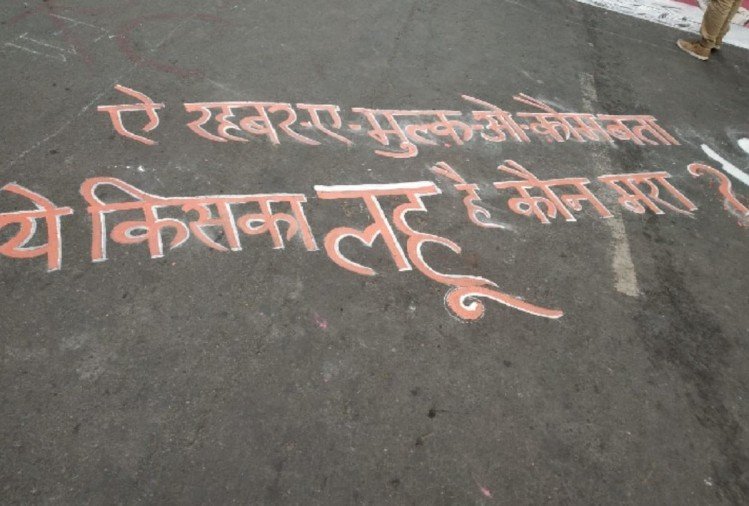 ऐ रहबर-ए-मुल्क-ओ-कौम बता
ये किसका लहू है कौन मरा ?